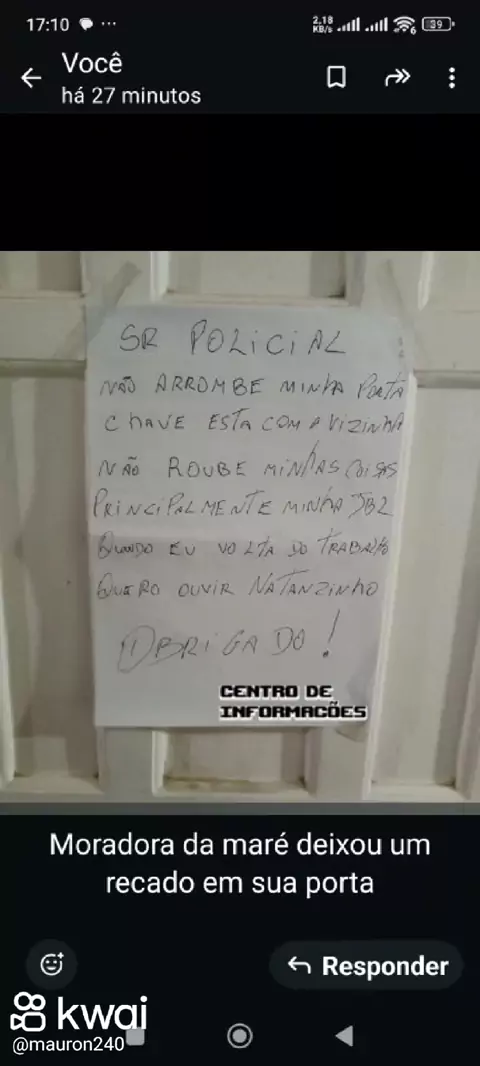 17:10
2,18
KB/s
6
39
Você
há 27 minutos
SR POLICIAL
NÃO ARROMBE MINHA PORTA
CHAVE ESTA COM A VIZINHA
NÃO ROUBE MINHAS COISAS
PRINCIPALMENTE MINHA JBL
QUANDO EU VOLTA DO TRABALHO
QUERO OUVIR NATANZINHO
OBRIGADO!
CENTRO DE
INFORMACÕES
Moradora da maré deixou um
recado em sua porta
Responder
kwai
@mauron240